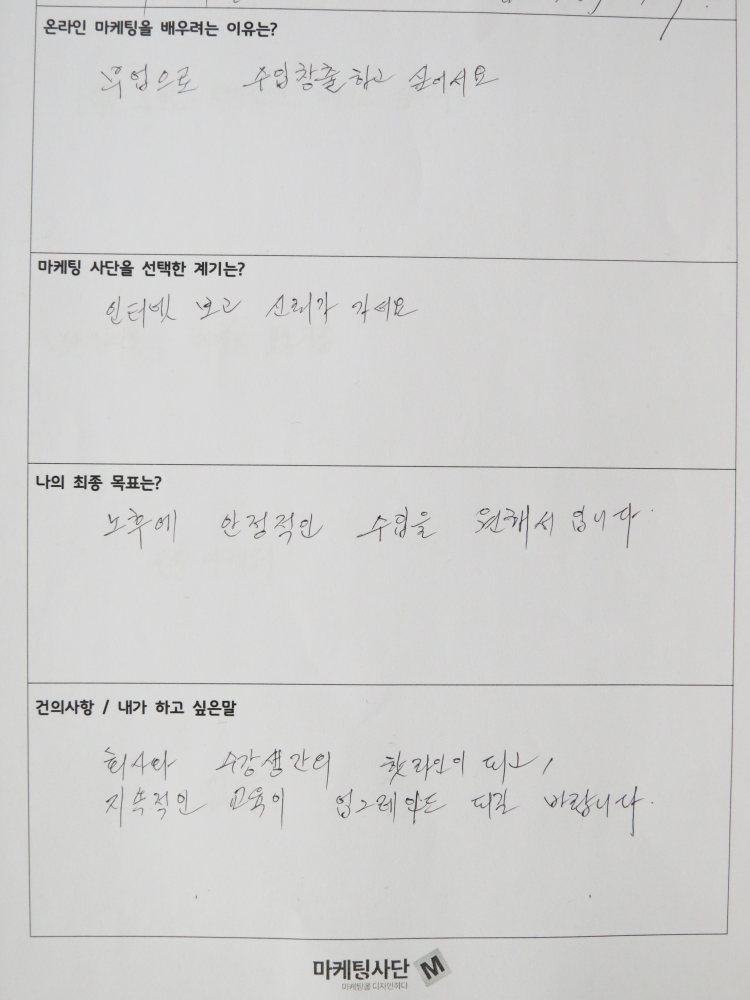 온라인 마케팅을 배우려는 이유는?
부업으로 수입창출하고 싶어서요
마케팅 사단을 선택한 계기는?
인터넷 보고 신뢰가 가세요
나의 최종 목표는?
노후에 안정적인 수입을 원해서 입니다.
건의사항 / 내가 하고 싶은말
회사와 수강생간의 핫라인이 되고,
지속적인 교육이 업그레이드 되길 바랍니다.
마케팅사단 M
마케팅을 디자인하다